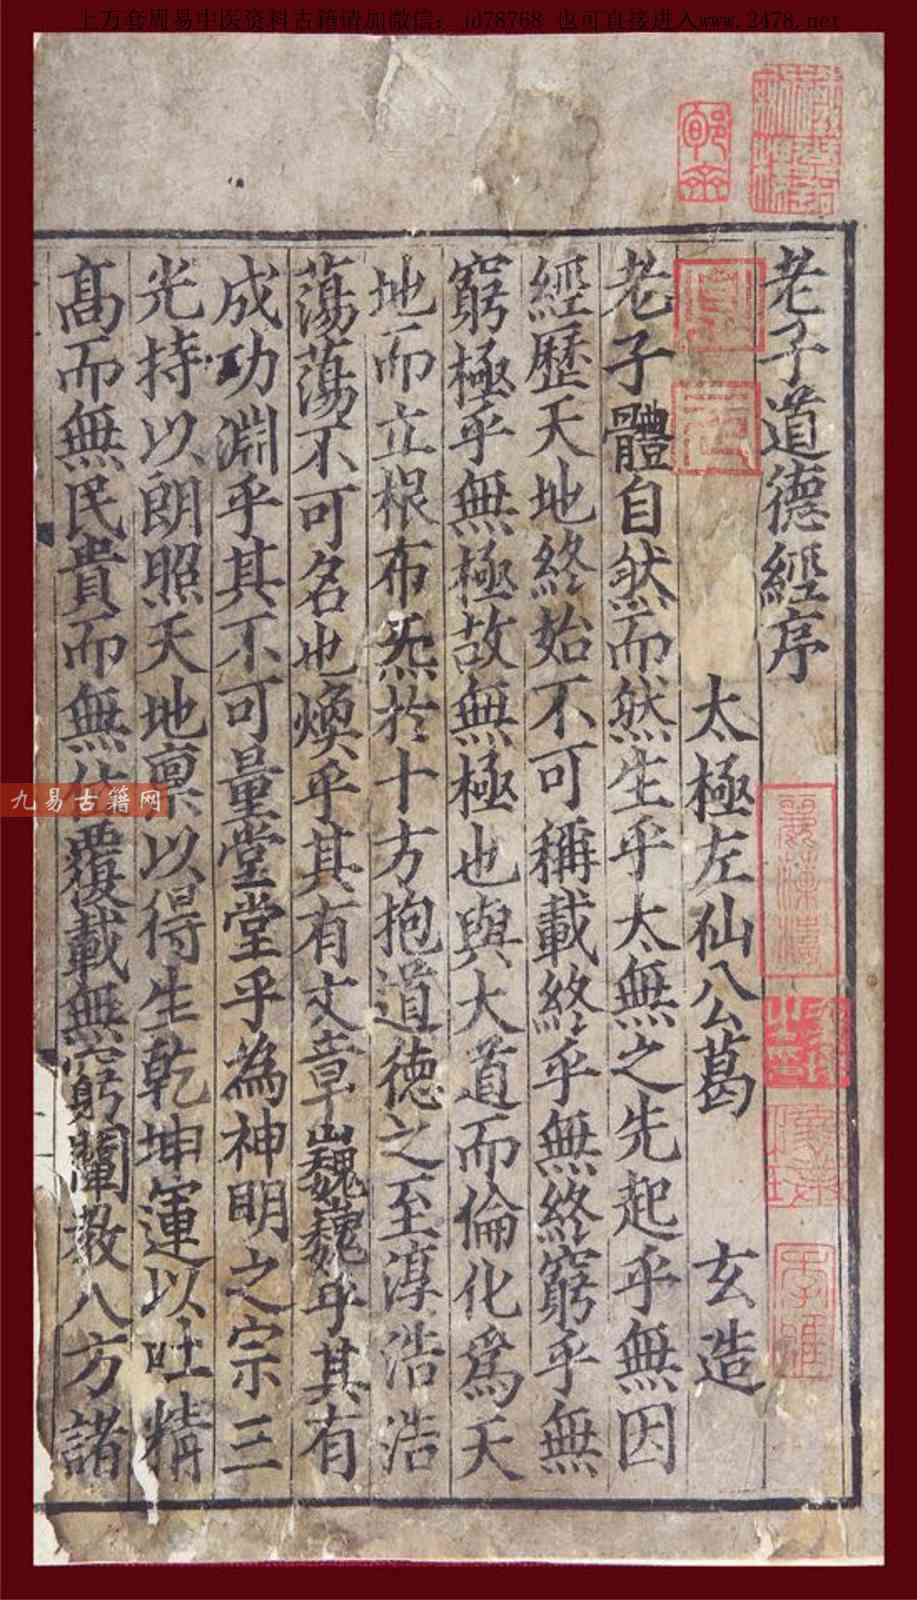 上万套周易中医资料古籍请加微信： jd78768 也可直接进入www.2478.net
老子道德經序
太極左仙公葛 玄造
老子體自然而然生乎太無之先起乎無因
經歷天地終始不可稱載終乎無終窮乎無
窮極乎無極故無極也與大道而倫化爲天
地而立根布炁於十方抱道德之至淳浩浩
蕩蕩不可名也煥乎其有文章巍巍乎其有
成功淵乎其不可量堂堂乎為神明之宗三
光持以朗照天地稟以得生乾坤運以吐精
髙而無民貴而無位覆載無窮闡教八方諸
九易古籍网